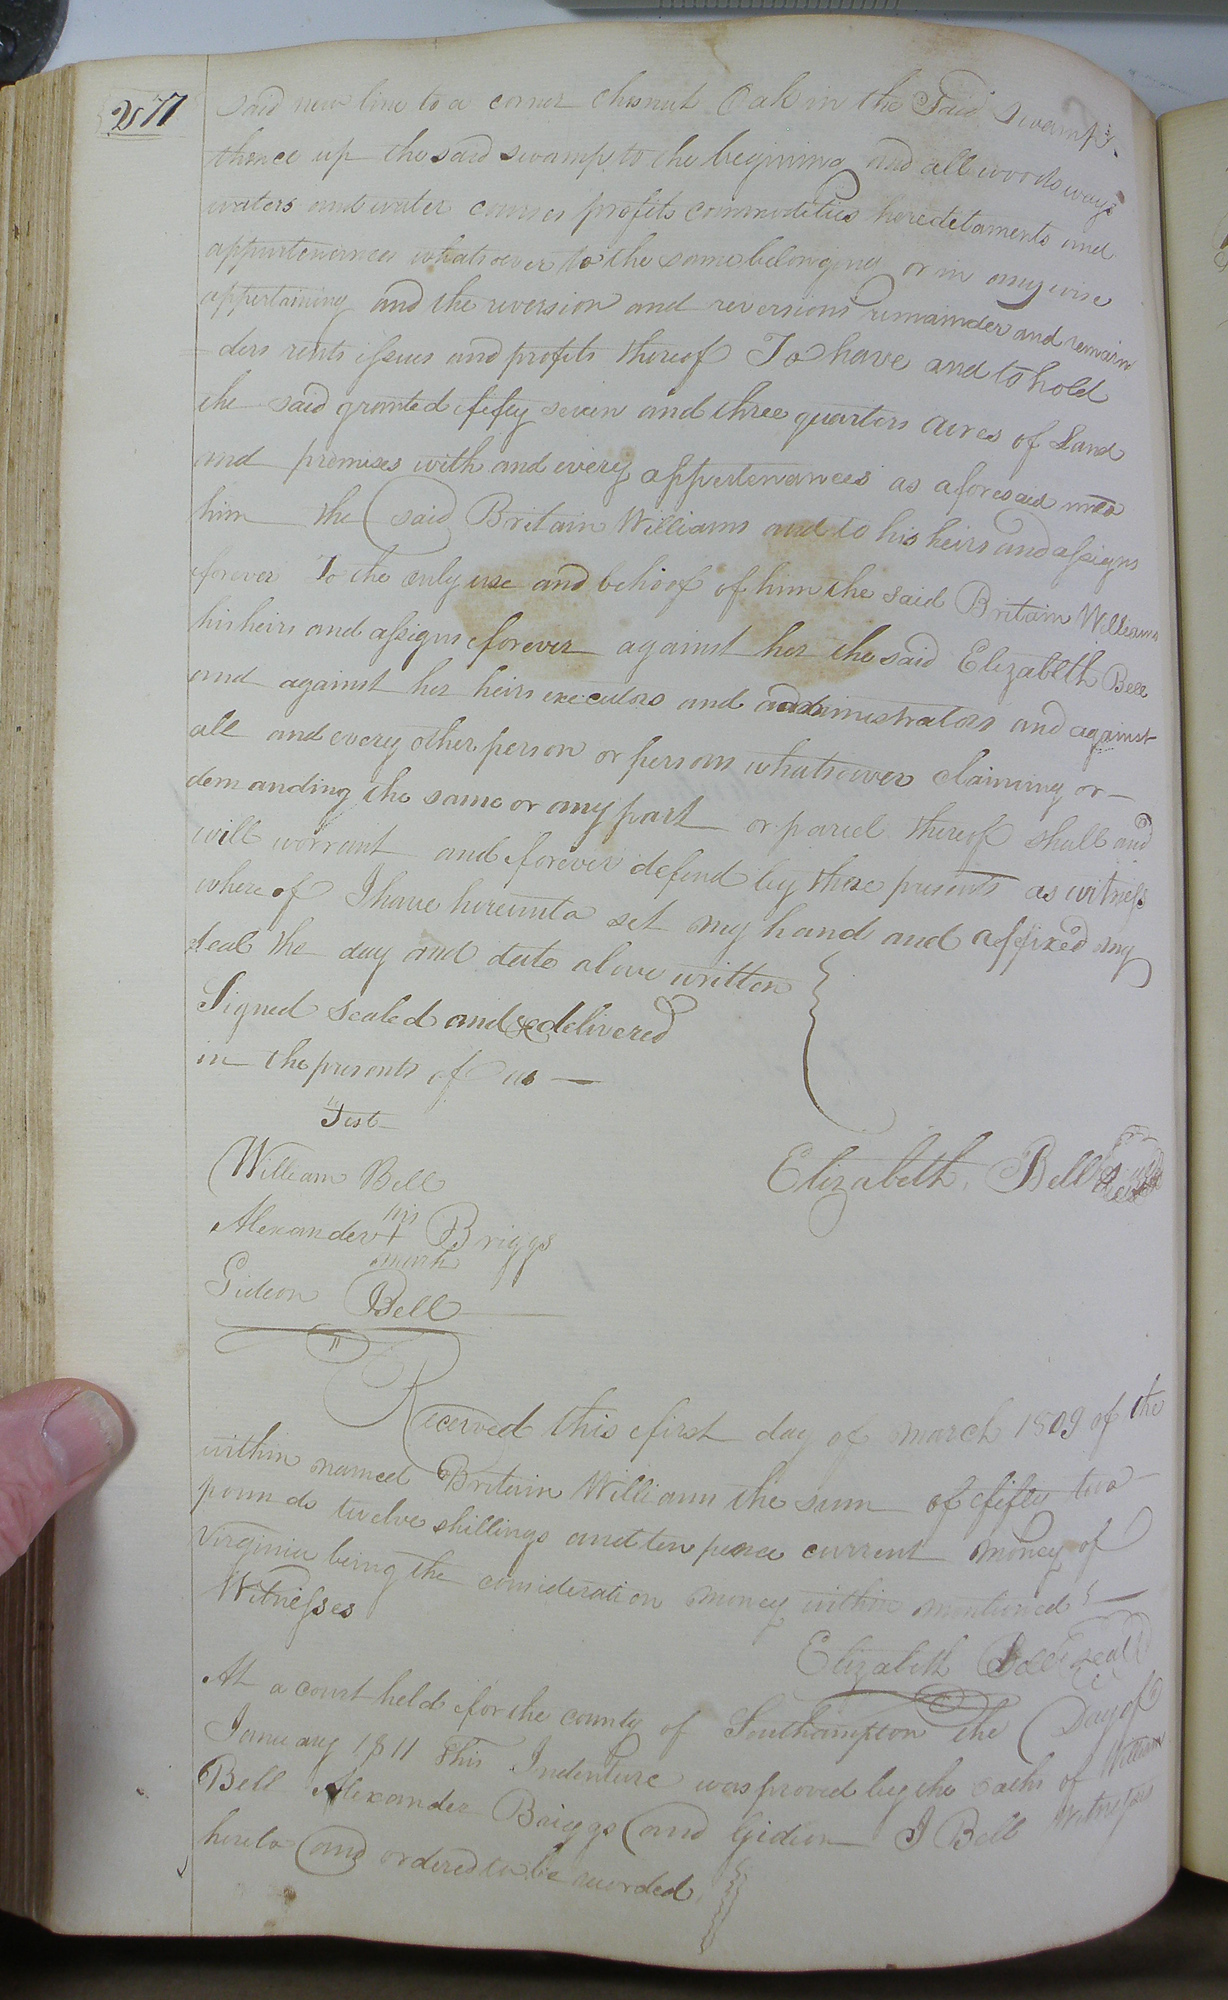 277
said new line to a corner chesnut Oak in the said swamp
thence up the said swamp to the begining and all woods ways
waters and water courses profits commodities heredetaments and
appurtenances whatsoever to the same belonging or in anywise
appertaining and the reversion and reversions remainder and remain
=ders rents issues and profits thereof To have and to hold
the said granted fifty seven and three quarters acres of Land
and premises with and every appertenances as aforesaid unto
him the said Britain Williams and to his heirs and assigns
forever To the only use and behoof of him the said Britain Williams
his heirs and assigns forever against her the said Elizabeth Bell
and against her heirs executors and administrators and against
all and every other person or persons whatsoever claiming or
demanding the same or any part or parcel thereof shall and
will warrant and forever defend by these presents as witness
where of I have hereunto set my hand and affixed my
seal the day and date above written
Signed sealed and delivered
in the presents of us
Test
William Bell
Elizabeth Bell
his
Alexander + Briggs
mark
Gideon Bell
Received this first day of march 1809 of the
within named Britain Williams the sum of fifty two
pounds twelve shillings and ten pence current money of
Virginia being the consideration money within mentioned
Witnesses
Elizabeth Bell seal
At a court held for the county of Southampton the Day of
January 1811 This Indenture was proved by the oaths of William
Bell Alexander Briggs and Gideon J Bell Witnesses
hereto and ordered to be recorded